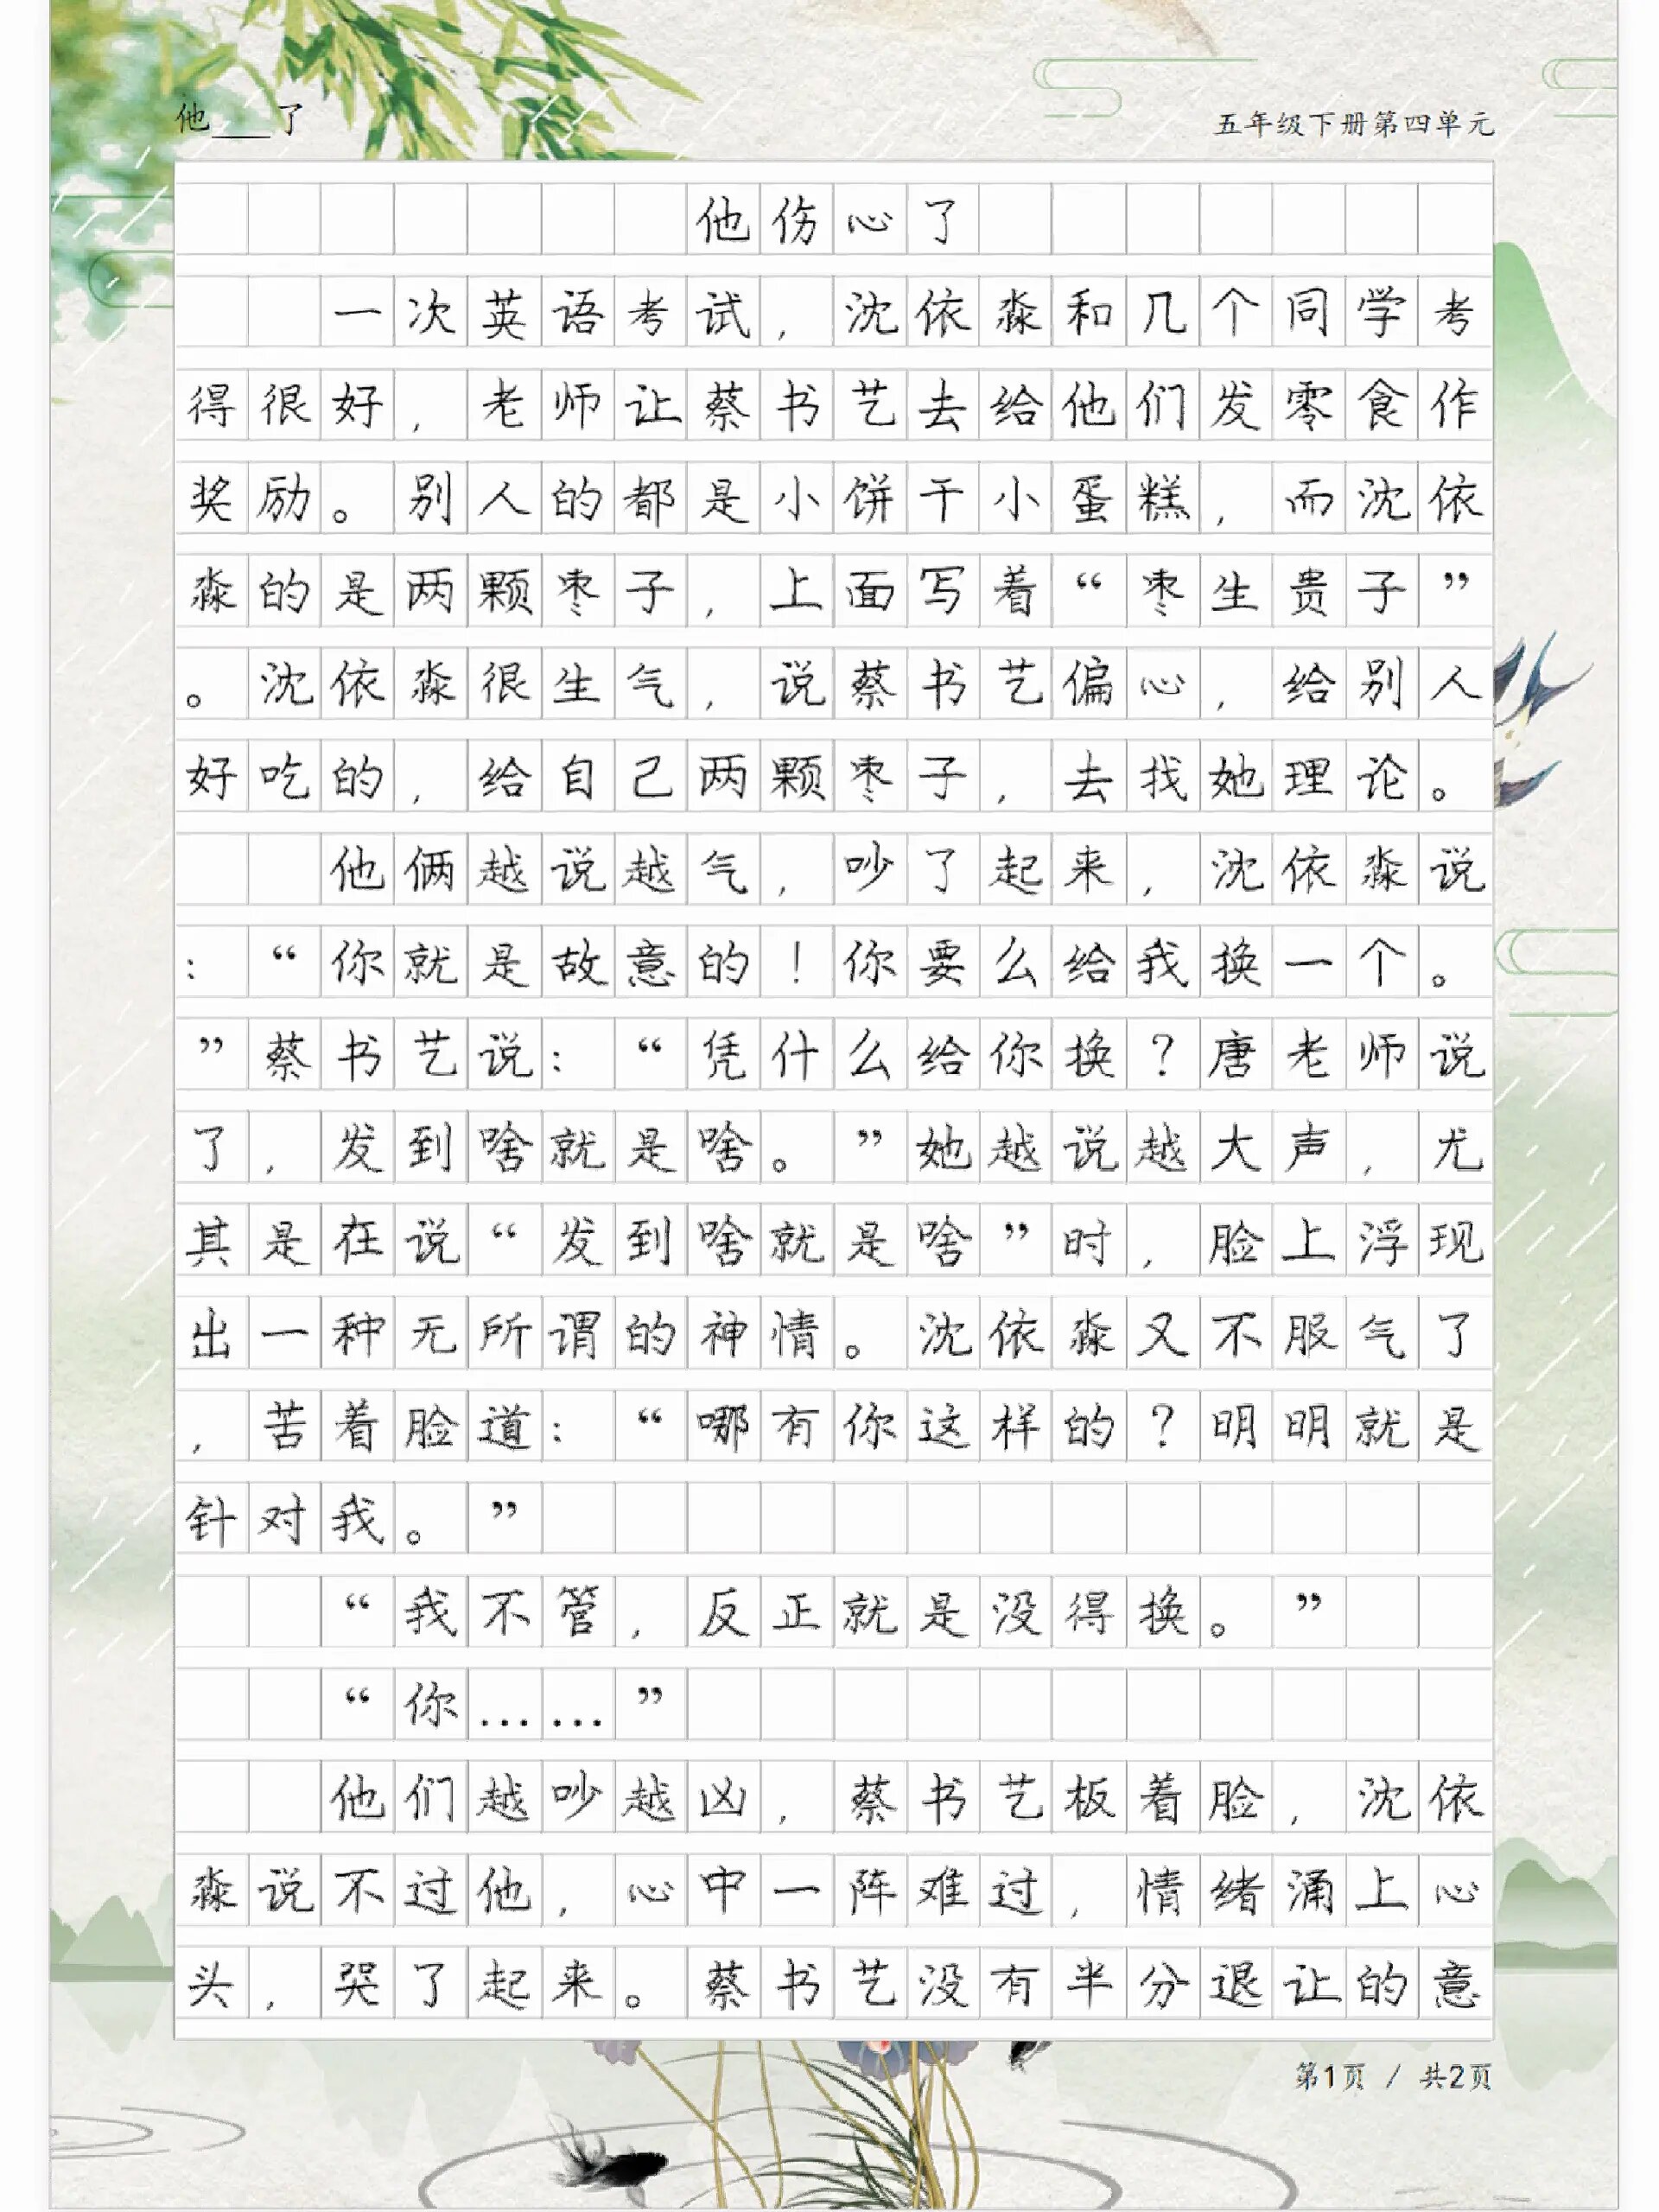 他___了
五年级下册第四单元
他伤心了
一次英语考试，沈依淼和几个同学考
得很好，老师让蔡书艺去给他们发零食作
奖励。别人的都是小饼干小蛋糕，而沈依
淼的是两颗枣子，上面写着“枣生贵子”
。沈依淼很生气，说蔡书艺偏心，给别人
好吃的，给自己两颗枣子，去找她理论。
他俩越说越气，吵了起来，沈依淼说
：“你就是故意的！你要么给我换一个。
”蔡书艺说：“凭什么给你换？唐老师说
了，发到啥就是啥。”她越说越大声，尤
其是在说“发到啥就是啥”时，脸上浮现
出一种无所谓的神情。沈依淼又不服气了
，苦着脸道：“哪有你这样的？明明就是
针对我。”
“我不管，反正就是没得换。”
“你……”
他们越吵越凶，蔡书艺板着脸，沈依
淼说不过他，心中一阵难过，情绪涌上心
头，哭了起来。蔡书艺没有半分退让的意
第1页 / 共2页